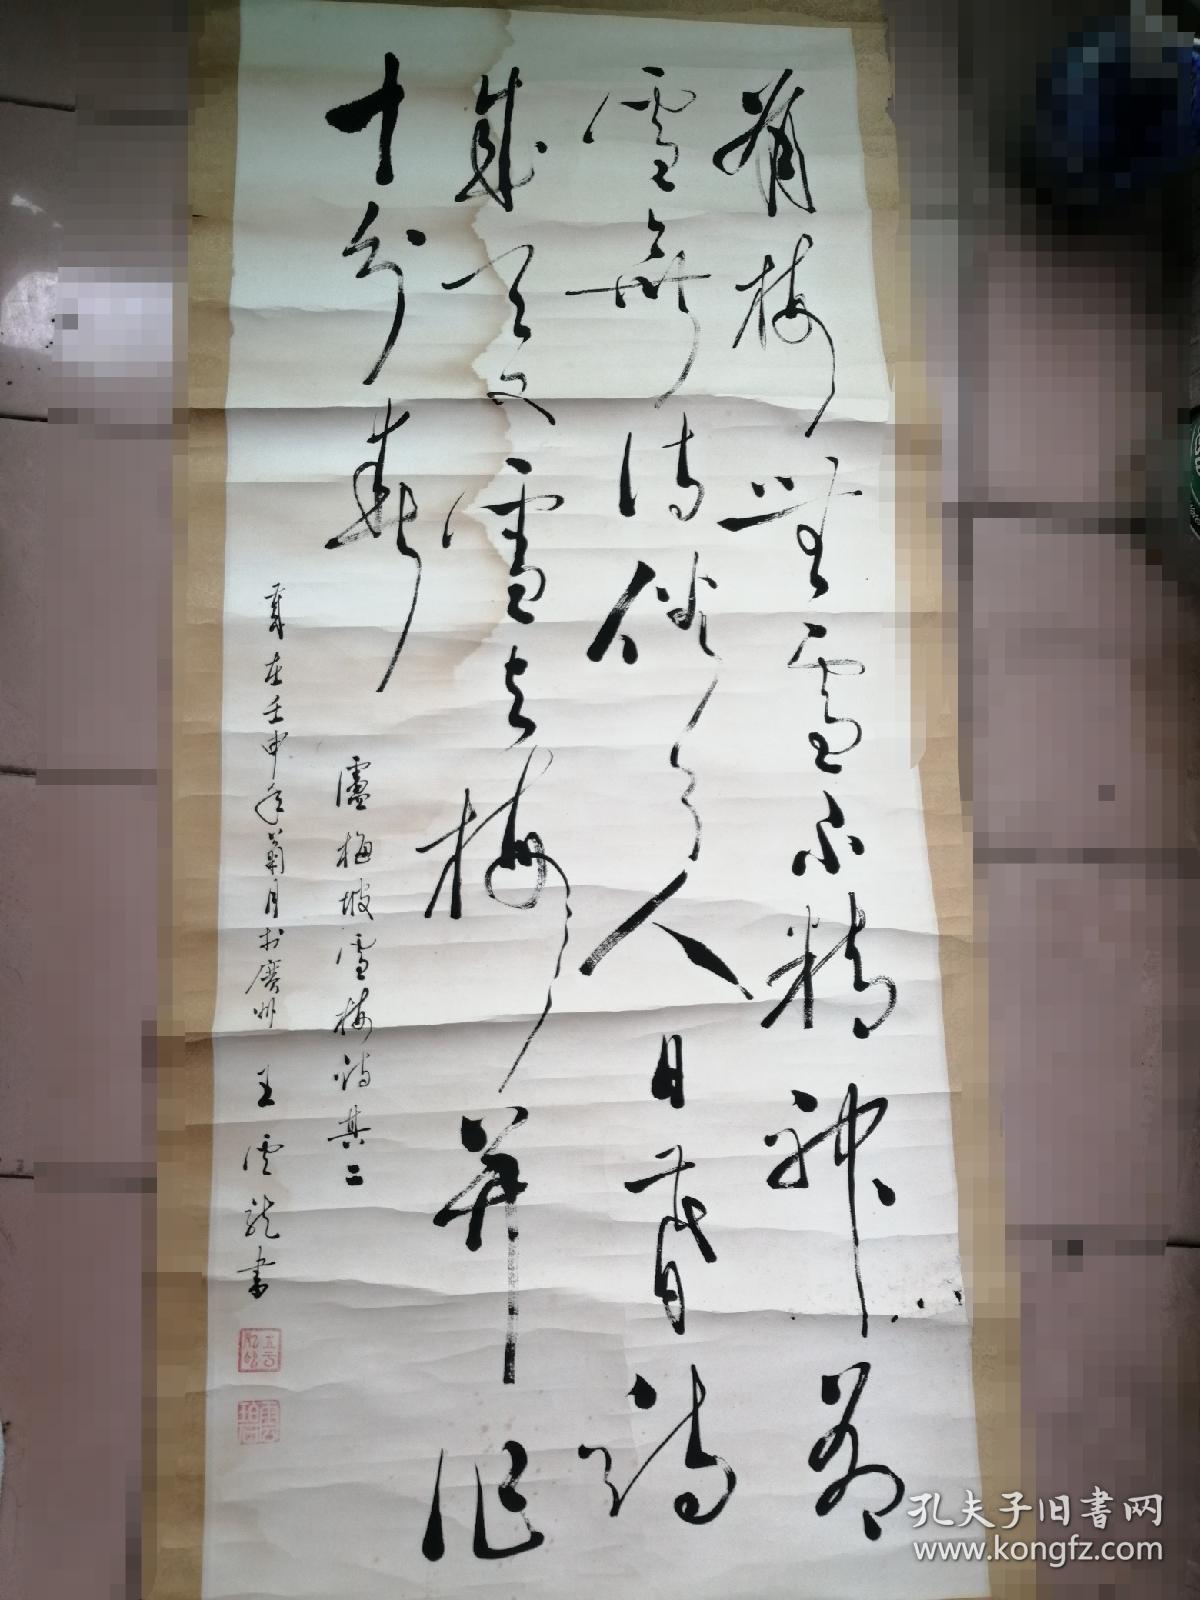 有梅無雪不精神有
雪無詩俗了人日暮詩
成天又雪与梅并作
十分春
盧梅坡雪梅詩其二
歲在壬申年菊月於廣州 王雲龍書
孔夫子旧书网
www.kongfz.com